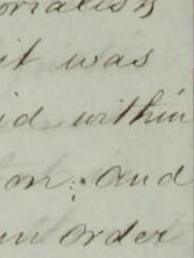 orialists
it was
id within
on: and
an order